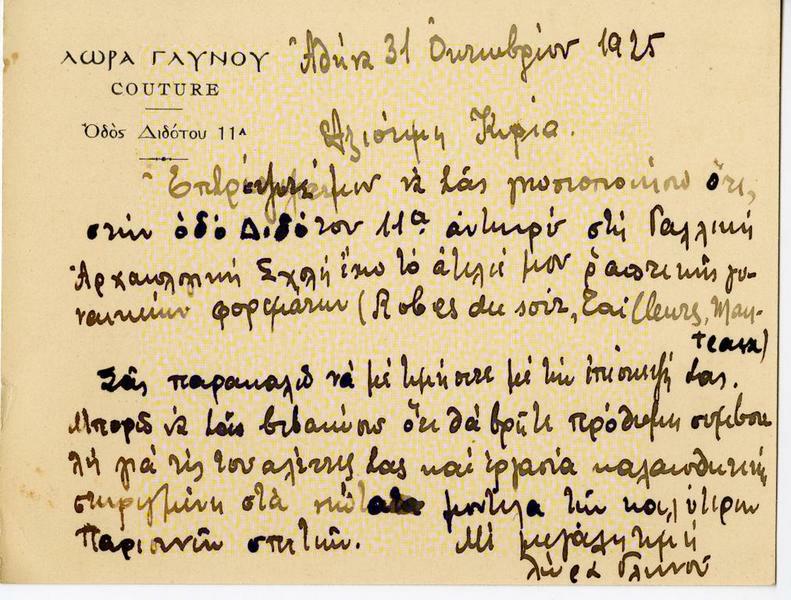 ΛΩΡΑ ΓΛΥΝΟΥ
COUTURE
Ὁδὸς Διδότου 11Α
Ἀθήνα 31 Ὀκτωβρίου 1925
Ἀξιότιμη Κυρία.
Ἐπιτρέψατέ μου νὰ Σᾶς γνωστοποιήσω ὅτι,
στὴν ὁδὸ Διδότου 11α ἀντικρὺ στὴ Γαλλικὴ
Ἀρχαιολογικὴ Σχολὴ ἔχω τὸ ἀτελιέ μου ῥαπτικῆς γυ-
ναικείων φορεμάτων (Robes du soir, tailleurs, Man-
teaux)
Σᾶς παρακαλῶ νὰ μὲ τιμήσετε μὲ τὴν ἐπίσκεψή Σας.
Μπορῶ νὰ Σᾶς βεβαιώσω ὅτι θὰ βρῆτε πρόθυμη συμβου
λὴ γιὰ τὶς τουαλέττες Σας καὶ ἐργασία καλαισθητικὴ
στηριγμένη στὰ μοντέλα τῶν καλύτερων
Παρισινῶν σπιτιῶν. Μὲ μεγάλη τιμὴ
Λώρα Γλυνοῦ